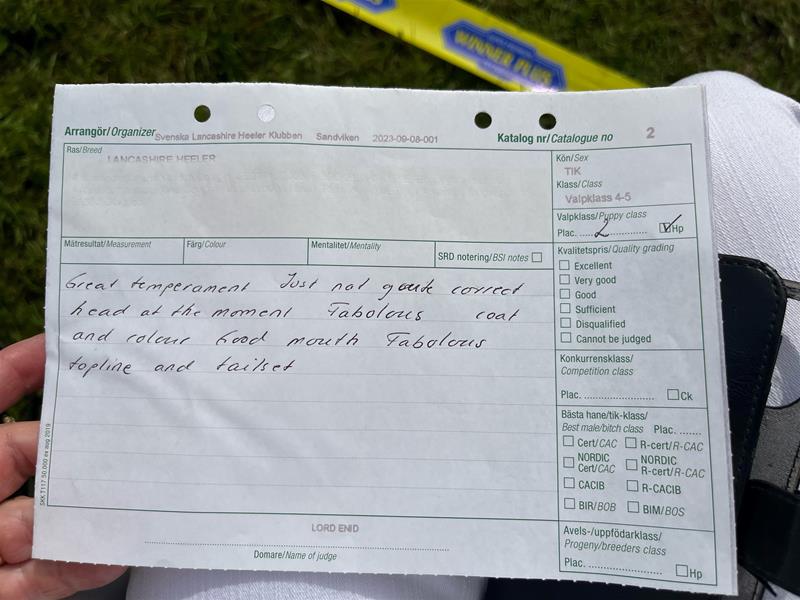 WINNER PLUS
Arrangör/Organizer Svenska Lancashire Heeler Klubben Sandviken 2023-09-08-001 Katalog nr/Catalogue no 2
Ras/Breed LANCASHIRE HEELER
Kön/Sex
TIK
Klass/Class
Valpklass 4-5
Valpklass/Puppy class
Plac. 2 Hp
Mätresultat/Measurement Färg/Colour Mentalitet/Mentality SRD notering/BSI notes
Kvalitetspris/Quality grading
Excellent
Very good
Good
Sufficient
Disqualified
Cannot be judged
Great temperament Just not quite correct
head at the moment Fabolous coat
and colour Good mouth Fabolous
topline and tailset
Konkurrensklass/
Competition class
Plac. Ck
Bästa hane/tik-klass/
Best male/bitch class Plac.
Cert/CAC R-cert/R-CAC
NORDIC Cert/CAC NORDIC R-cert/R-CAC
CACIB R-CACIB
BIR/BOB BIM/BOS
Avels-/uppfödarklass/
Progeny/breeders class
Plac. Hp
LORD ENID
Domare/Name of judge
SKK T117 50 000 ex aug 2019